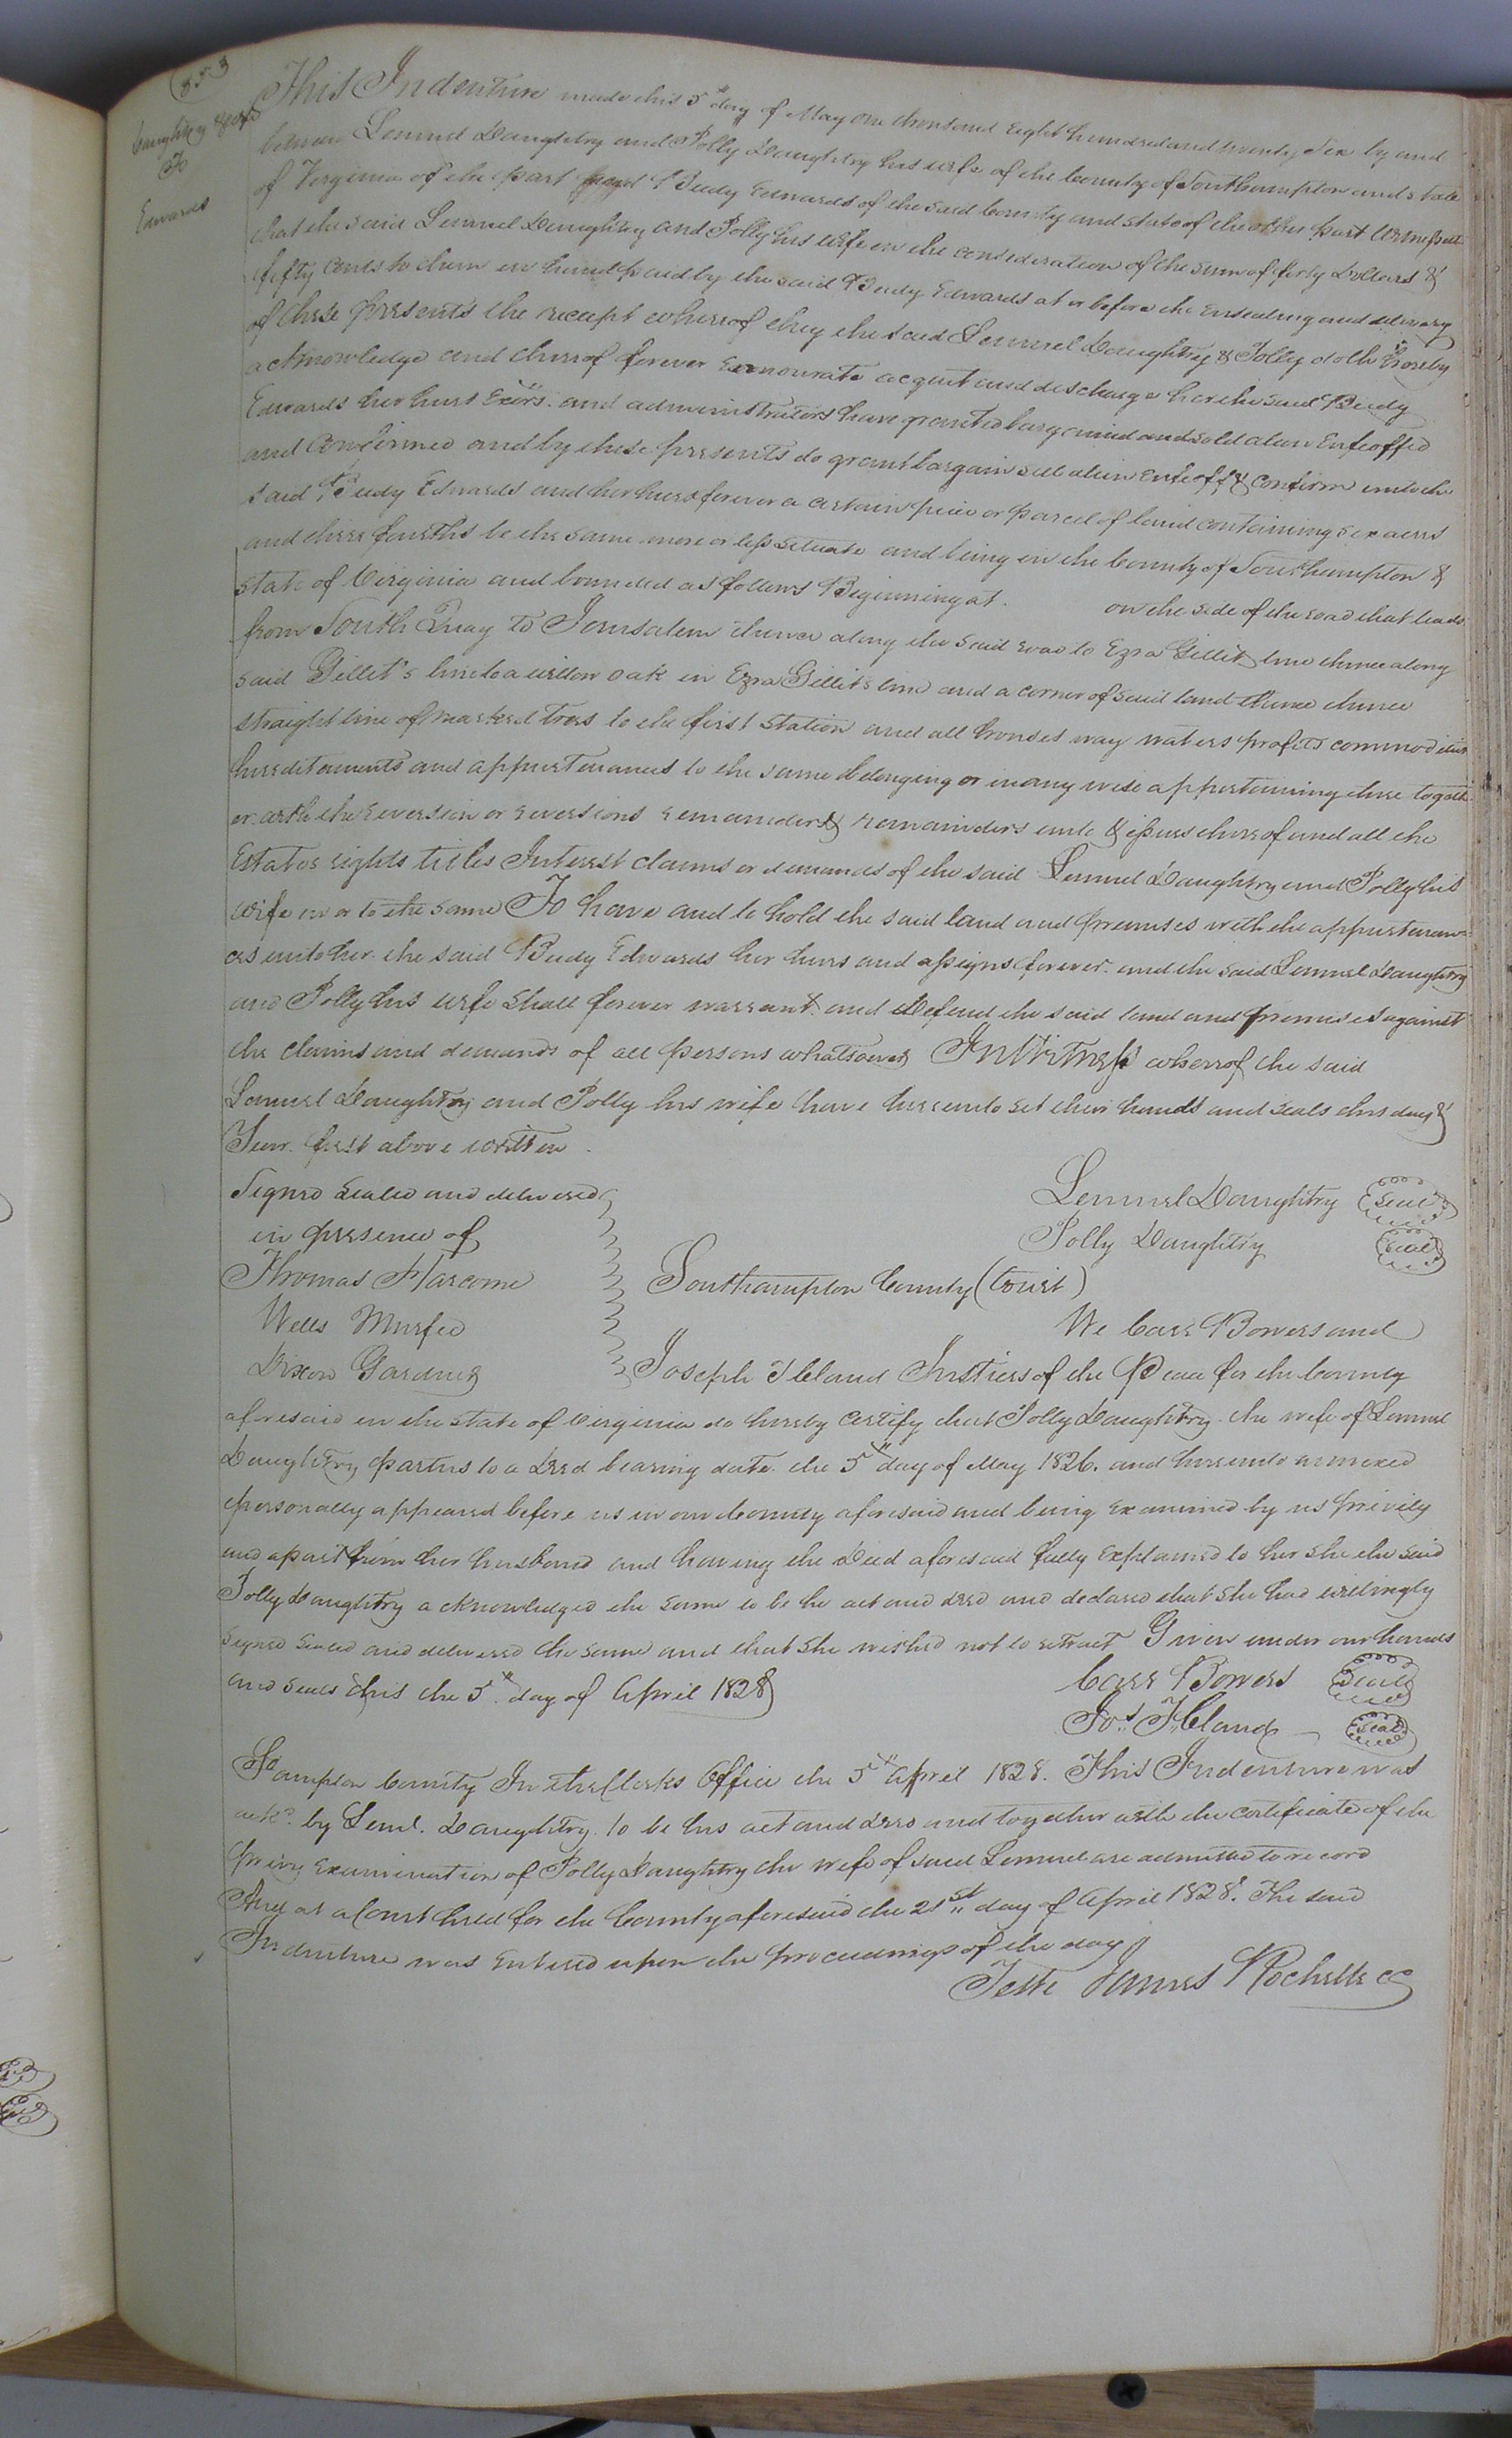 353
Daughtry & wife
To
Edwards
This Indenture made this 5th day of May one thousand Eight hundred and twenty Six by and
between Lemuel Daughtry and Polly Daughtry his wife of the County of Southampton and state
of Virginia of the part and Beedy Edwards of the said County and state of the other part Witnesseth
that the said Lemuel Daughtry and Polly his wife in the consideration of the sum of forty Dollars &
fifty cents to them in hand paid by the said Beedy Edwards at or before the Ensealing and delivery
of these presents the receipt whereof they the said Lemuel Daughtry & Polly doth hereby
acknowledge and thereof forever Exonourate acquit and discharge her the said Beedy
Edwards her heirs Exors. and administrators have granted bargained and sold alien Enfeoffed
and Confirmed and by these presents do grant bargain sell alien Enfeoff & Confirm unto the
said Beedy Edwards and her heirs forever a certain piece or parcel of land containing six acres
and three fourths be the same more or less situate and being in the County of Southampton &
state of Virginia and bounded as follows Beginning at . on the side of the road that leads
from South Quay to Jerusalem thence along the said road to Ezra Gillit line thence along
said Gillit's line to a willow oak in Ezra Gillits line and a corner of said land thence
straight line of marked trees to the first station and all houses way waters profits commodities
hereditaments and appurtenances to the same belonging or in any wise appertaining there togeth
er with the reversion or reversions remainder & remainders and issues thereof and all the
Estates rights titles Interest claims or demands of the said Lemuel Daughtry and Polly his
wife in or to the same To have and to hold the said land and premises with the appurtenan-
ces unto her the said Beedy Edwards her heirs and assigns forever. and the said Lemuel Daughtry
and Polly his wife shall forever warrant and Defend the said land and premises against
the claims and demands of all persons whatsoever In Witness whereof the said
Lemuel Daughtry and Polly his wife have hereunto set their hands and seals this day &
Year first above written.
Signed Sealed and delivered
in presence of
Thomas Harcome
Wells Murfee
Dixon Gardner
Lemuel Daughtry Seal
Polly Daughtry Seal
Southampton County (Court)
We Carr Bowers and
Joseph T Cland Justices of the Peace for the County
aforesaid in the state of Virginia do hereby Certify that Polly Daughtry the wife of Lemuel
Daughtry parties to a deed bearing date the 5th day of May 1826. and hereunto annexed
personally appeared before us in our County aforesaid and being Examined by us privily
and apart from her husband and having the Deed aforesaid fully Explained to her she the said
Polly Daughtry acknowledged the same to be he act and deed and declared that she had willingly
signed sealed and delivered the same and that she wished not to retract Given under our hands
and seals this the 5th day of April 1828
Carr Bowers Seal
Jos. T Cland Seal
Sampton County In the Clerks Office the 5th April 1828. This Indenture was
ackd. by Leml. Daughtry to be his act and deed and together with the certificate of the
privy Examination of Polly Daughtry the wife of said Lemuel are admitted to record
And at a Court held for the County aforesaid the 21st day of April 1828. The said
Indenture was Entered upon the proceedings of the day
Teste James Rochelle cc